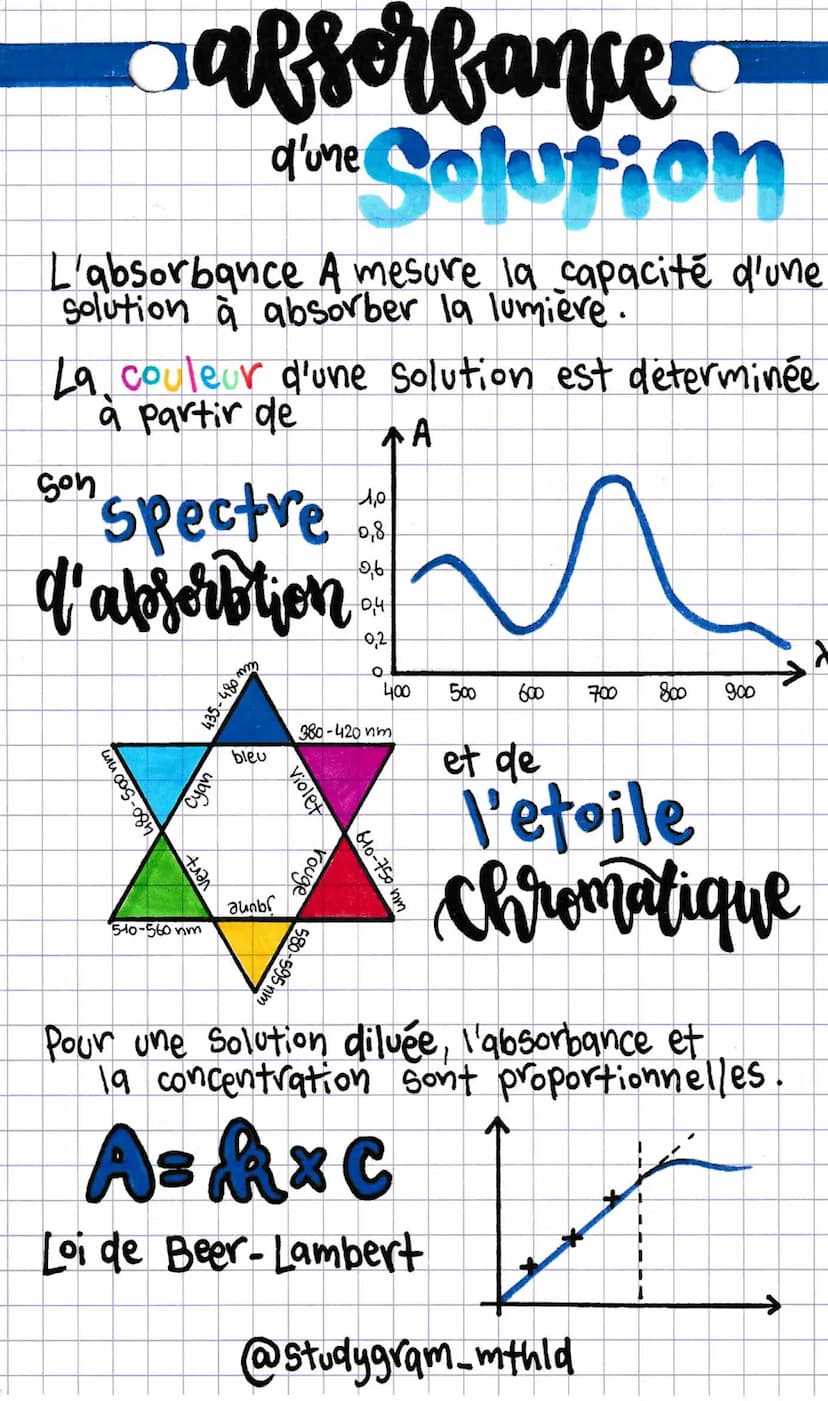 absorbance
d'une solution
L'absorbance A mesure la capacité d'une
solution à absorber la lumière.
La couleur d'une solution est déterminée
à partir de
son spectre
d'absorbtion
A
1,0
0,8
0,6
0,4
0,2
0
400 500 600 700 800 900
λ
435-480 nm
bleu
380-420 nm
violet
480-500 nm
cyan
vert
510-560 nm
jaune
580-595 nm
rouge
610-750 nm
et de
l'etoile
chromatique
Pour une solution diluée, l'absorbance et
la concentration sont proportionnelles.
A = k x C
Loi de Beer-Lambert
@studygram_mthld